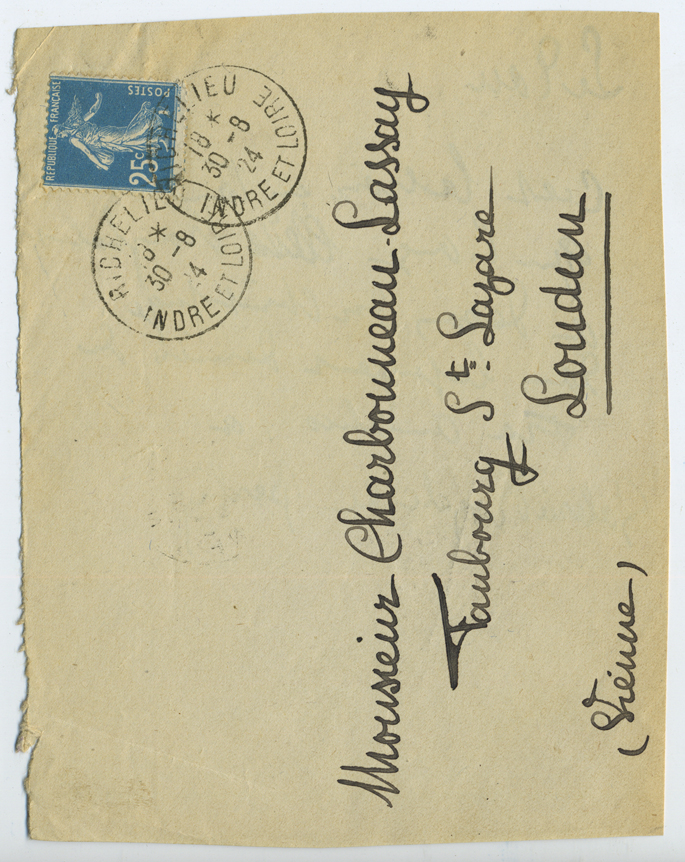 REPUBLIQUE FRANÇAISE
POSTES
25c
RICHELIEU
18 *
30 -8
24
INDRE ET LOIRE
RICHELIEU
18 *
30 -8
24
INDRE ET LOIRE
Monsieur Charbonneau-Lassay
Faubourg St-Lazare
Loudun
(Vienne)